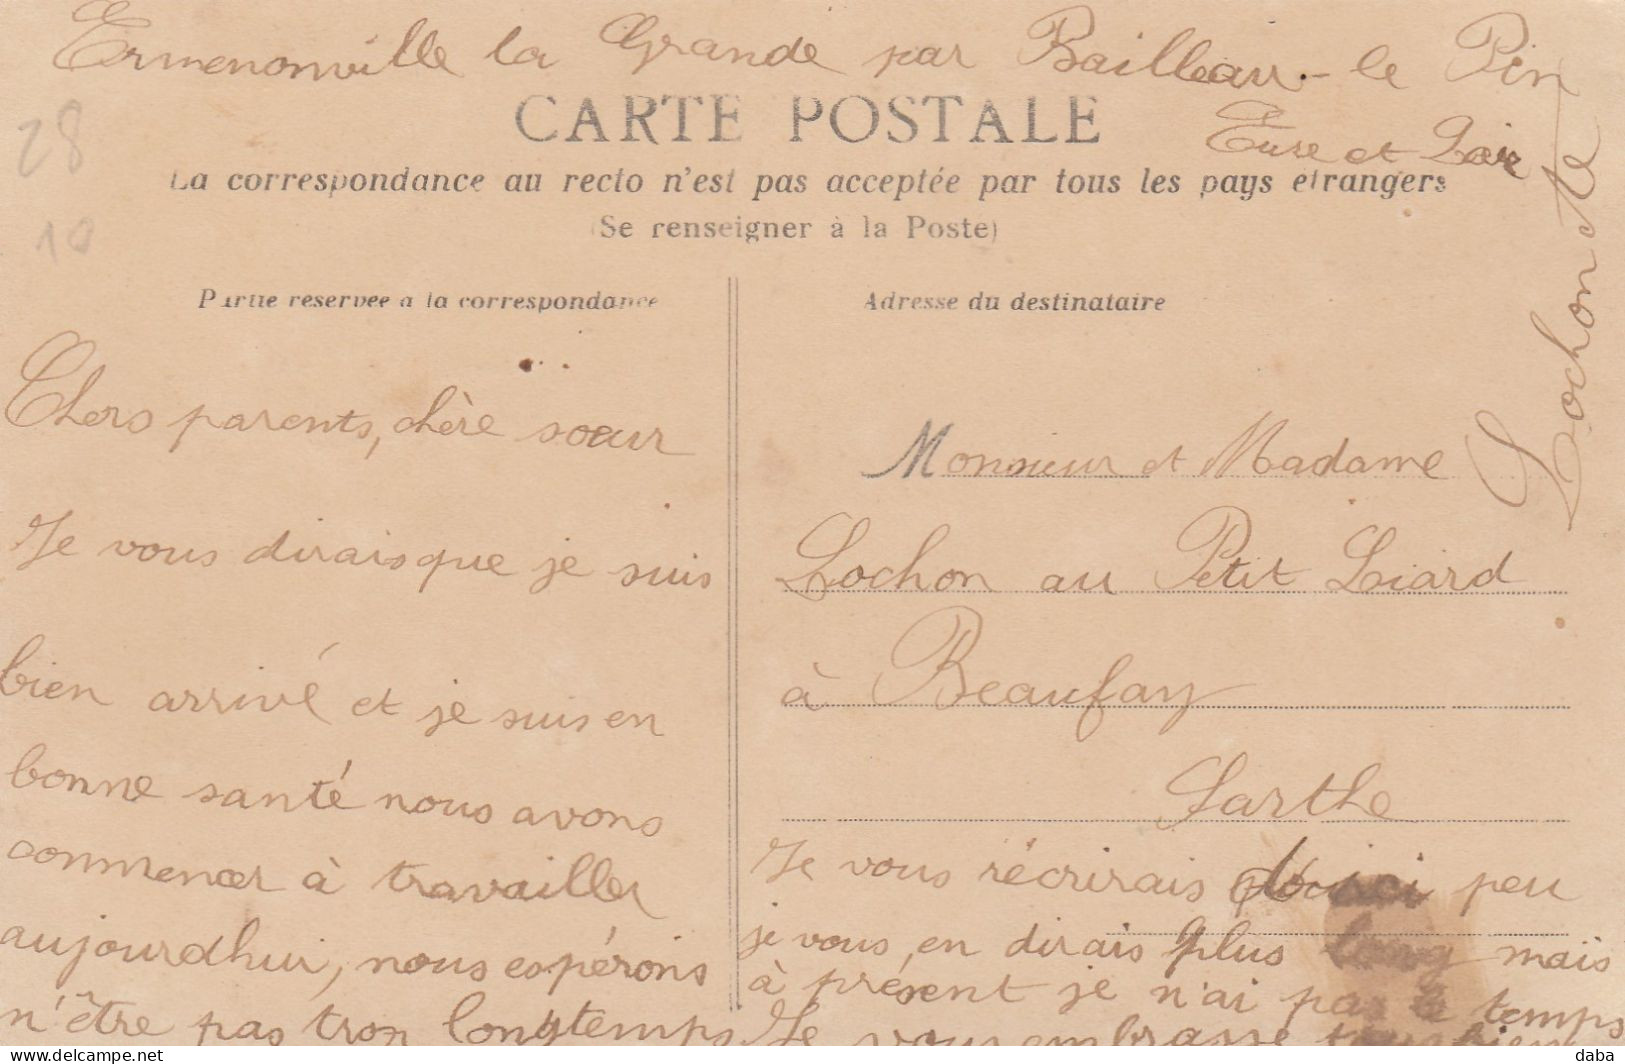 Ermenonville la Grande par Bailleau-le Pin
Eure et Loir
28
10
CARTE POSTALE
La correspondance au recto n'est pas acceptée par tous les pays étrangers
(Se renseigner à la Poste)
Partie réservée à la correspondance
Chers parents, chère soeur
Je vous dirais que je suis
bien arrivé et je suis en
bonne santé nous avons
commencer à travailler
aujourdhui, nous espérons
n'être pas trop longtemps
Adresse du destinataire
Monsieur et Madame
Lochon au Petit Liard
à Beaufay
Sarthe
Je vous récrirais d'ici peu
je vous en dirais plus long maïs
à présent je n'ai pas le temps
Je vous embrasse tous bien
Lochon
daba
www.delcampe.net